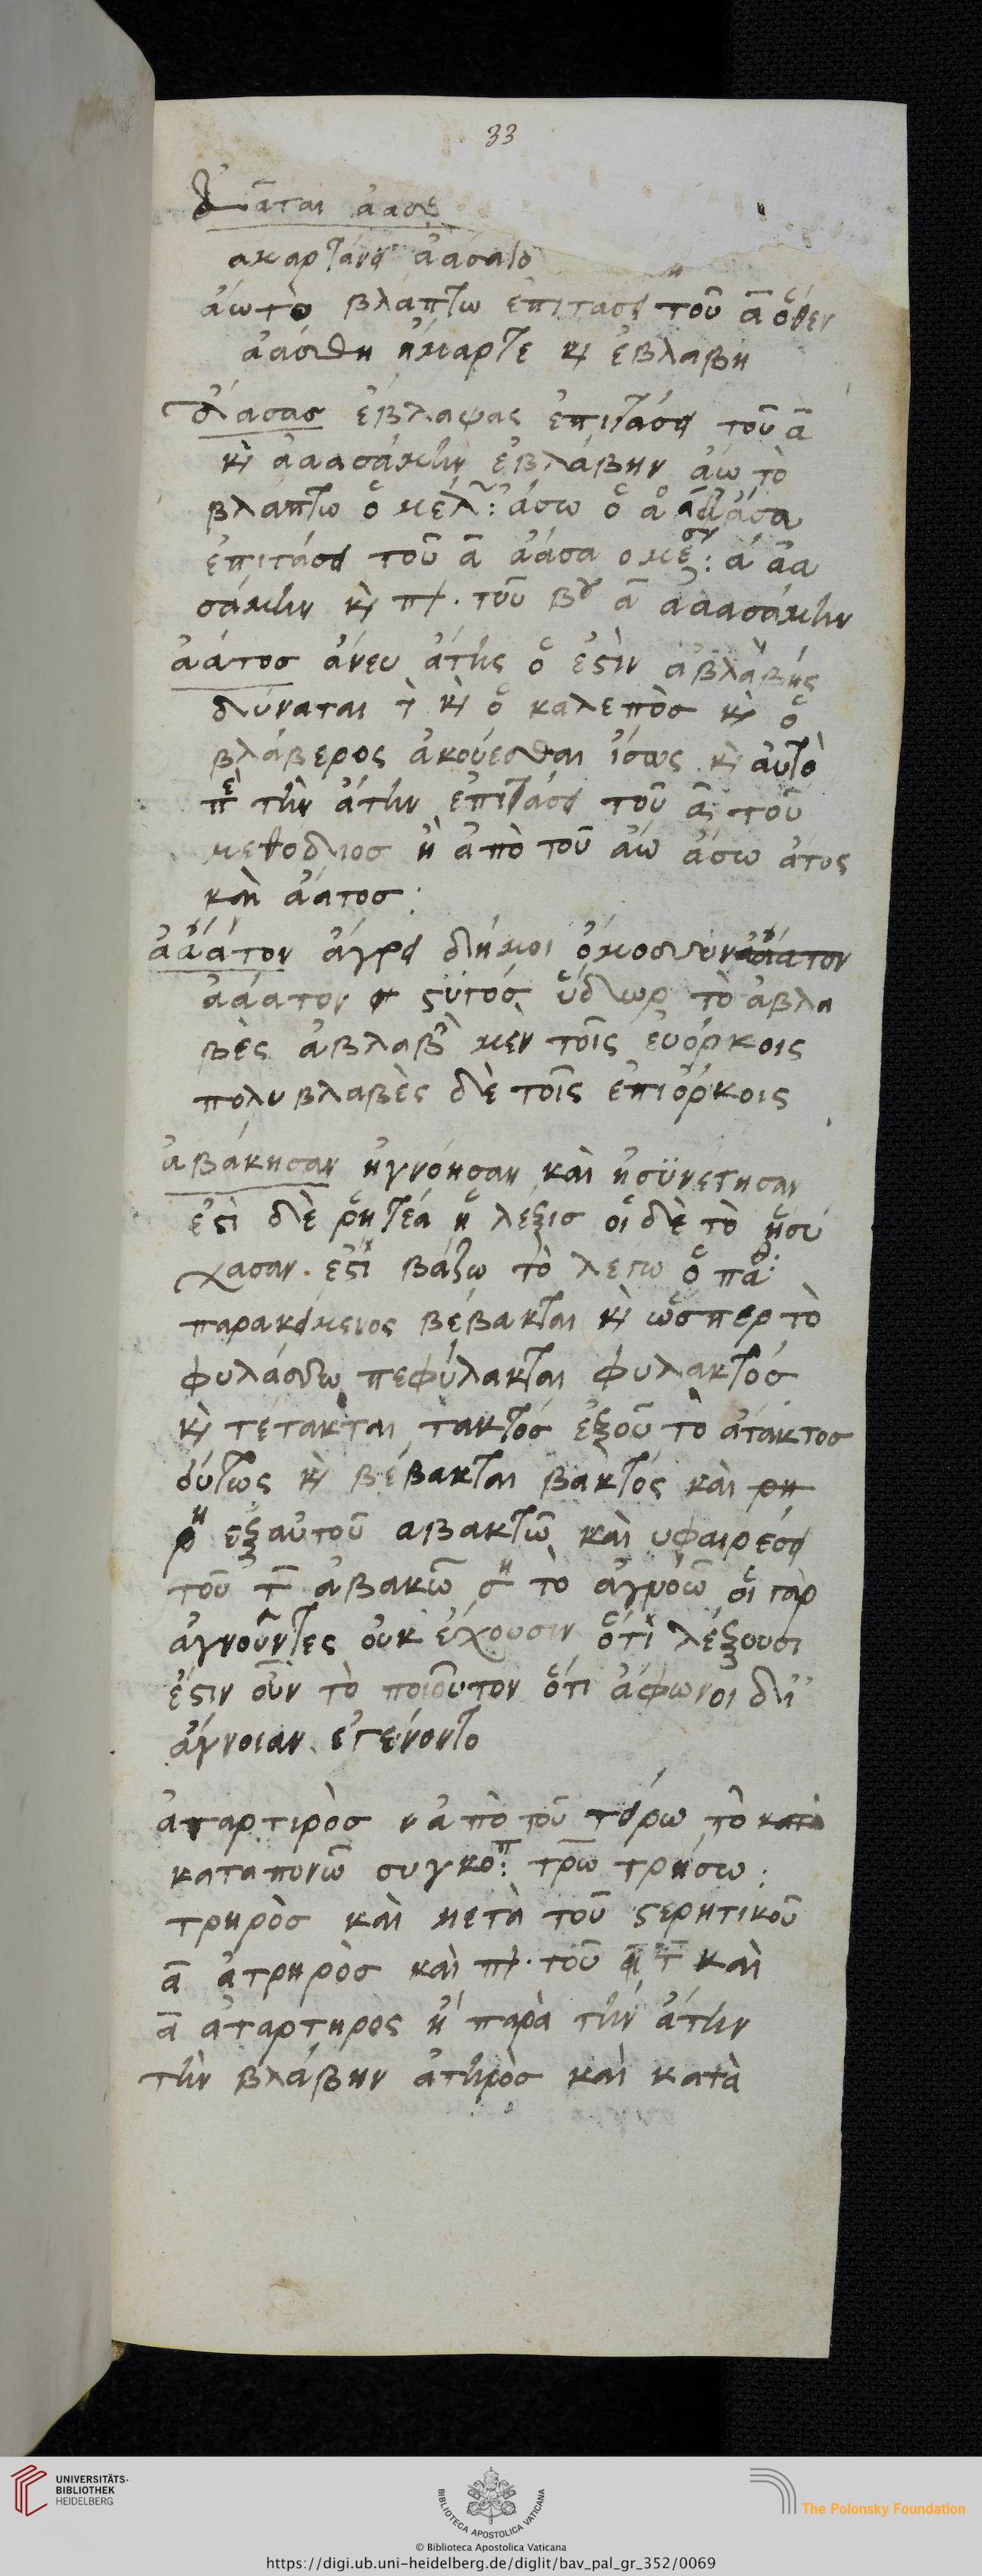 33
ἀᾶται ἀασε
αμαρτάνει ἀάσατο
ἄω τὸ βλάπτω ἐπιτασει τοῦ α̅ ὅθεν
ἀάσθη ἥμαρτε κ̀ ἐβλαβη
ἄασας ἔβλαψας ἐπιτάσει τοῦ α̅
κ̀ ἀαασάμην ἐβλάβην ἄω τὸ
βλαπτω ὁ μέλ: ἄσω ὁ ἀ ἄασα
ἐπιτάσει τοῦ α̅ ἀάσα ο μέσ: ἀ ἀα
σάμην κ̀ πλ. τοῦ β α̅ ἀαασάμην
ἀάτοσ ἄνευ ἄτης ὁ ἐϛὶν ἀβλαβής
δύναται τ̀ κ̀ ὁ χαλεπὸσ κ̀ ὁ
βλάβερος ἀκούεσθαι ἴσως κ̀ αὐτὸ
πε τὴν ἄτην ἐπιτάσει τοῦ α̅ τοῦ
μεθοδιοσ ἢ ἀπὸ τοῦ ἄω ἄσω ἄτος
καὶ ἄατοσ:
ἀάάτον ἄγρει δή μοι ὄ́μοσυν ἀάατον
ἀάατον ϛϋτόσ̀ ὕδωρ τὸ ἀβλα
βὲς ἀβλαβ μὲν τοῖς εὐόρκοις
πολυβλαβὲς δὲ τοῖς ἐπιόρκοις
ἀβάκησαν ἠγνόησαν καὶ ἠσϋνέτησαν
ἐϛὶ δὲ ῥητέα ἡ λέξισ οἱ δὲ τὸ ἡσύ
χασαν. ἐϛὶ βάζω τὸ λεγω ὁ παθ:
παρακείμενος βέβακται κ̀ ὥσπερ τὸ
φυλάσσω πεφύλακται φυλακτόσ
κ̀ τέτακται τακτόσ ἐξοῦ τὸ ἀτάκτοσ
οὕτως κ̀ βέβακται βακτός καὶ ρη
ρη ἐξαὐτοῦ αβακτῶ καὶ υφαιρέσει
τοῦ τ̅ ἀβακῶ ση τὸ ἀγνοῶ οἱ γὰρ
ἀγνοοῦντες οὐκ ἔχουσιν ὅτι λέξουσι
ἔϛιν οὖν τὸ ποιοῦτον ὅτι ἄφωνοι δι'
ἄγνοιαν ἐγένοντο
ἀταρτιρὸσ ν ἀπὸ τοῦ τείρω τὸ κατὰ
καταπονῶ συγκοπ: τρῶ τρήσω:
τρηρὸσ καὶ μετὰ τοῦ ϛερητικοῦ
α̅ ἀτρηρὸσ καὶ πλ. τοῦ τ̅ καὶ
α̅ ἀταρτηρὸς ἢ παρὰ τὴν ἄτην
τὴν βλάβην ἀτηρὸσ καὶ κατὰ
UNIVERSITÄTS-
BIBLIOTHEK
HEIDELBERG
BIBLIOTECA APOSTOLICA VATICANA
The Polonsky Foundation
© Biblioteca Apostolica Vaticana
https://digi.ub.uni-heidelberg.de/diglit/bav_pal_gr_352/0069